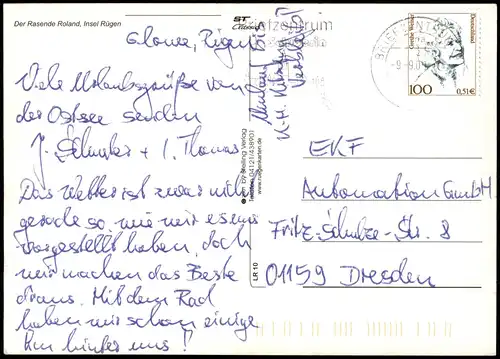 Der Rasende Roland, Insel Rügen
Glowe, Rügen
Viele Urlaubsgrüße von
der Ostsee senden
J. Schuster + I. Thomas
Das Wetter ist zwar nicht
gerade so, wie wir es uns
vorgestellt haben, doch
wir machen das Beste
draus. Mit dem Rad
haben wir schon einige
km hinter uns!
Urlaub bis
K.-H.
© by Stelling Verlag
04121/438901
www.ruegenkarten.de
LR 10
Briefzentrum
BRIEFZENTRUM
-9.-9.0
Deutschland
100
0,51€
EKF
Automation GmbH
Fritz-Schulze-Str. 8
01159 Dresden